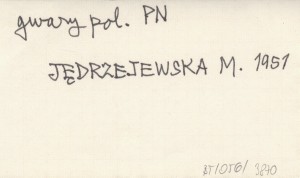 gwary poł. PN
JĘDRZEJEWSKA M. 1951
BT/OTG/ 3870